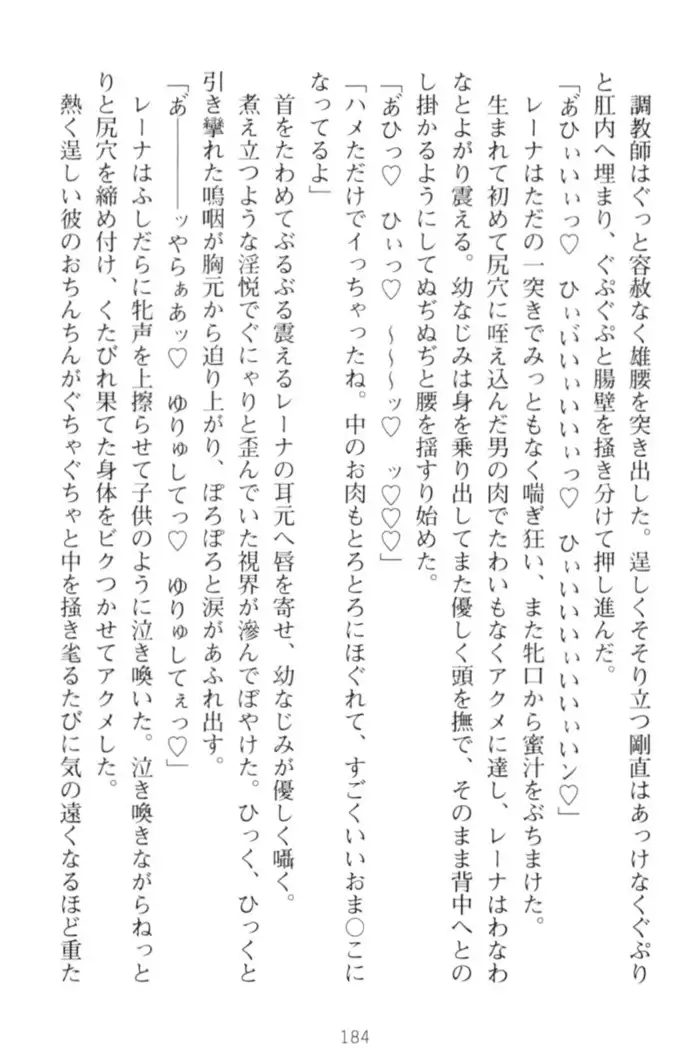 調教師はぐっと容赦なく雄腰を突き出した。逞しくそそり立つ剛直はあっけなくぐぷり
と肛内へ埋まり、ぐぷぐぷと腸壁を掻き分けて押し進んだ。
「あ゛ひぃいぃっ♡　ひぃい゛いぃいぃいぃっ♡　ひぃいいいぃいいぃいン♡」
レーナはただの一突きでみっともなく喘ぎ狂い、また牝口から蜜汁をぶちまけた。
生まれて初めて尻穴に咥え込んだ男の肉でたわいもなくアクメに達し、レーナはわなわ
なとよがり震える。幼なじみは身を乗り出してまた優しく頭を撫で、そのまま背中へとの
し掛かるようにしてぬぢぬぢと腰を揺すり始めた。
「あ゛ひっ♡　ひぃっ♡　～～～ッ♡　ッ♡♡♡」
「ハメただけでイっちゃったね。中のお肉もとろとろにほぐれて、すごくいいおま○こに
なってるよ」
首をたわめてぶるぶる震えるレーナの耳元へ唇を寄せ、幼なじみが優しく囁く。
煮え立つような淫悦でぐにゃりと歪んでいた視界が滲んでぼやけた。ひっく、ひっくと
引き攣れた嗚咽が胸元から迫り上がり、ぽろぽろと涙があふれ出す。
「あ゛―――ッやらぁあッ♡　ゆりゅしてっ♡　ゆりゅしてぇっ♡」
レーナはふしだらに牝声を上擦らせて子供のように泣き喚いた。泣き喚きながらねっと
りと尻穴を締め付け、くたびれ果てた身体をビクつかせてアクメした。
熱く逞しい彼のおちんちんがぐちゃぐちゃと中を掻き毟るたびに気の遠くなるほど重た
184